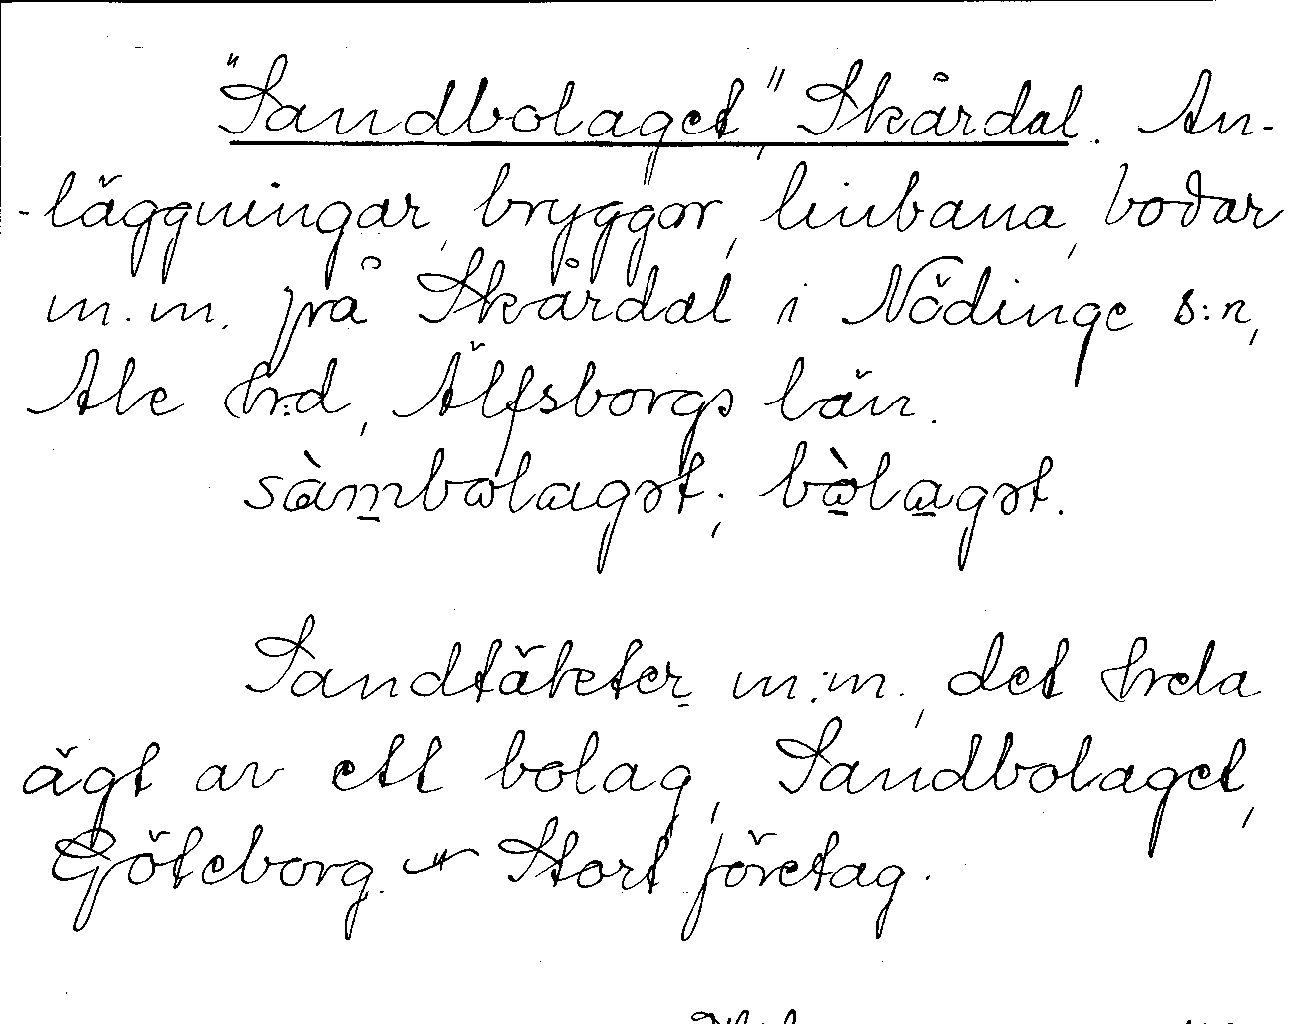 "Sandbolaget," Skårdal. An-
-läggningar, bryggor, linbana, bodar
m.m. på Skårdal i Nödinge s:n,
Ale hrd, Älfsborgs län.
sàmbolagət; bòlagət.
Sandtäkter m.m., det hela
ägt av ett bolag, Sandbolaget,
Göteborg. Stort företag.